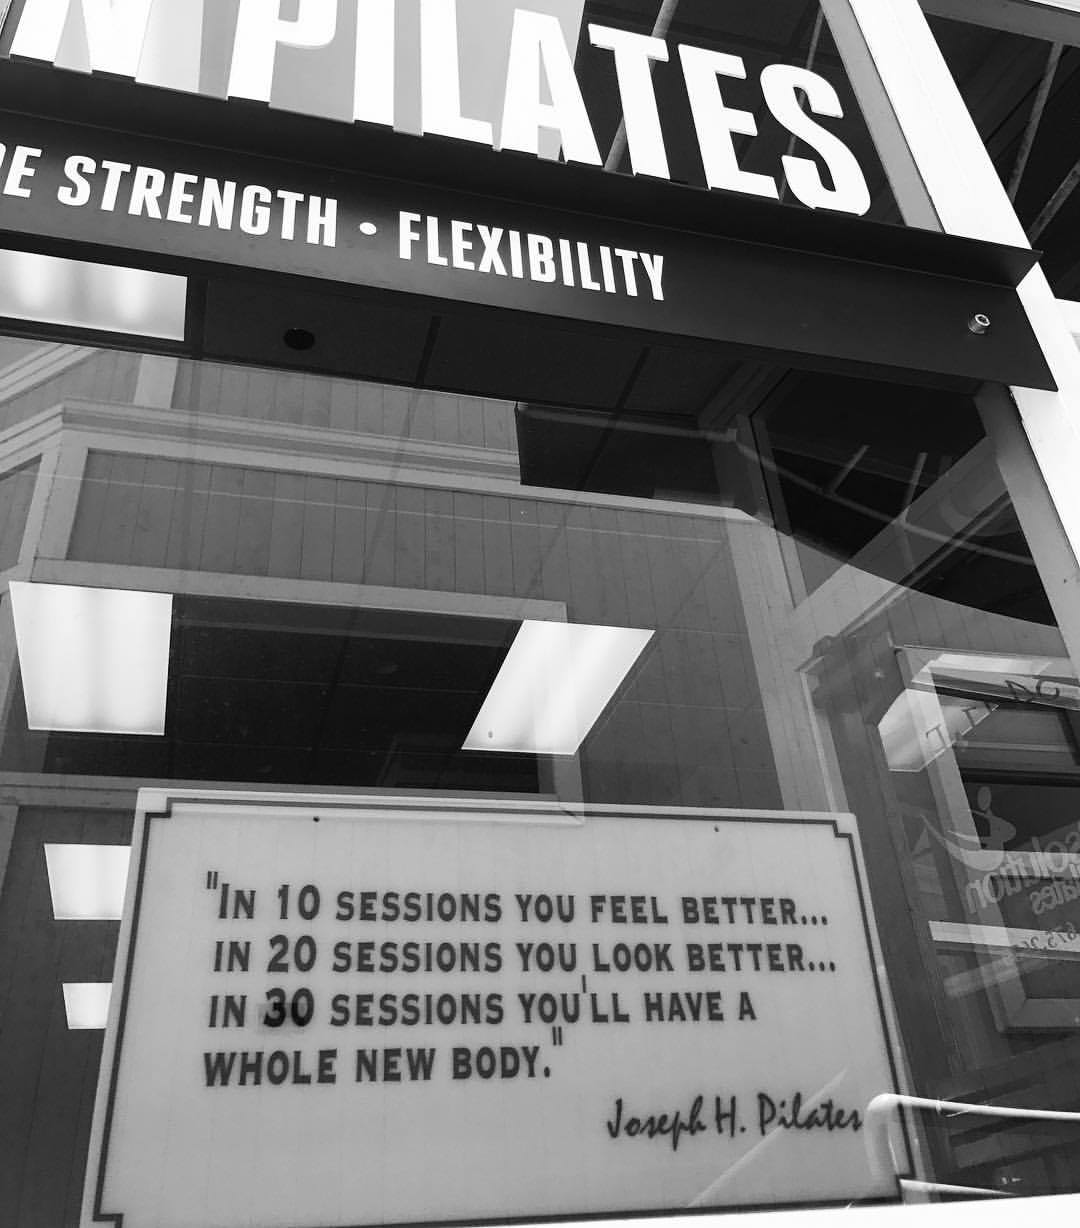 PILATES
STRENGTH • FLEXIBILITY
"IN 10 SESSIONS YOU FEEL BETTER...
IN 20 SESSIONS YOU LOOK BETTER...
IN 30 SESSIONS YOU'LL HAVE A
WHOLE NEW BODY."
Joseph H. Pilates
solution